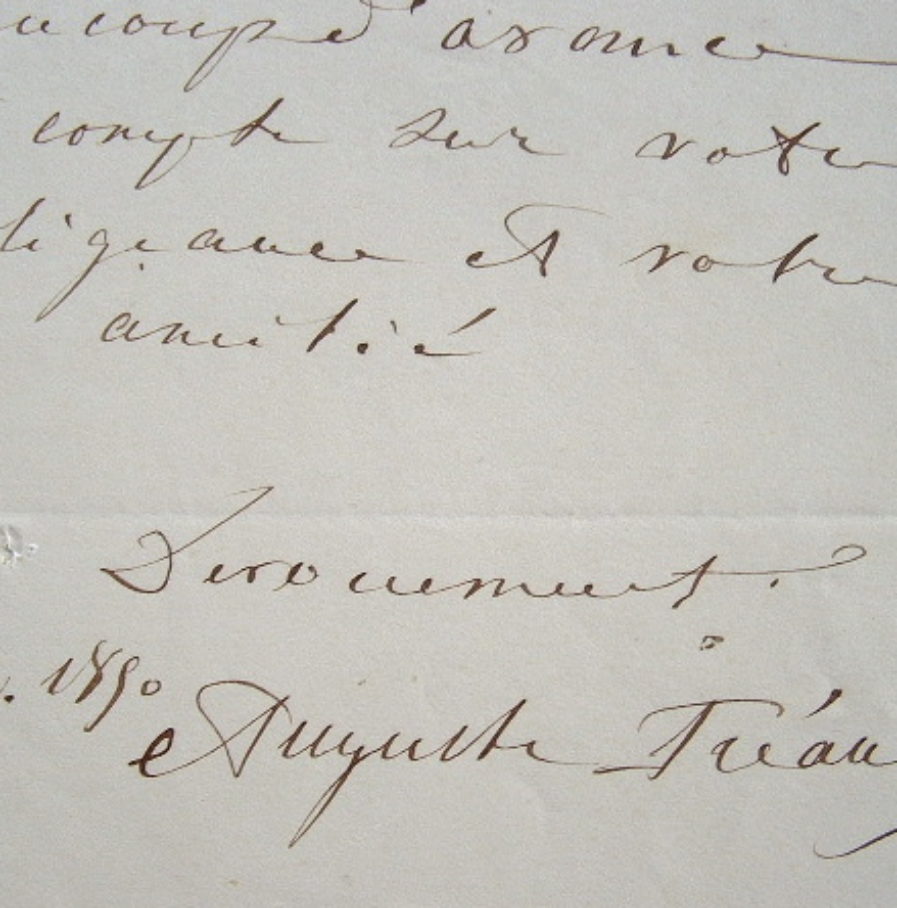 ucoup d'avance
compte sur votre
ligeance et votre
amitié
Devouement.
. 1850
Auguste Tréau